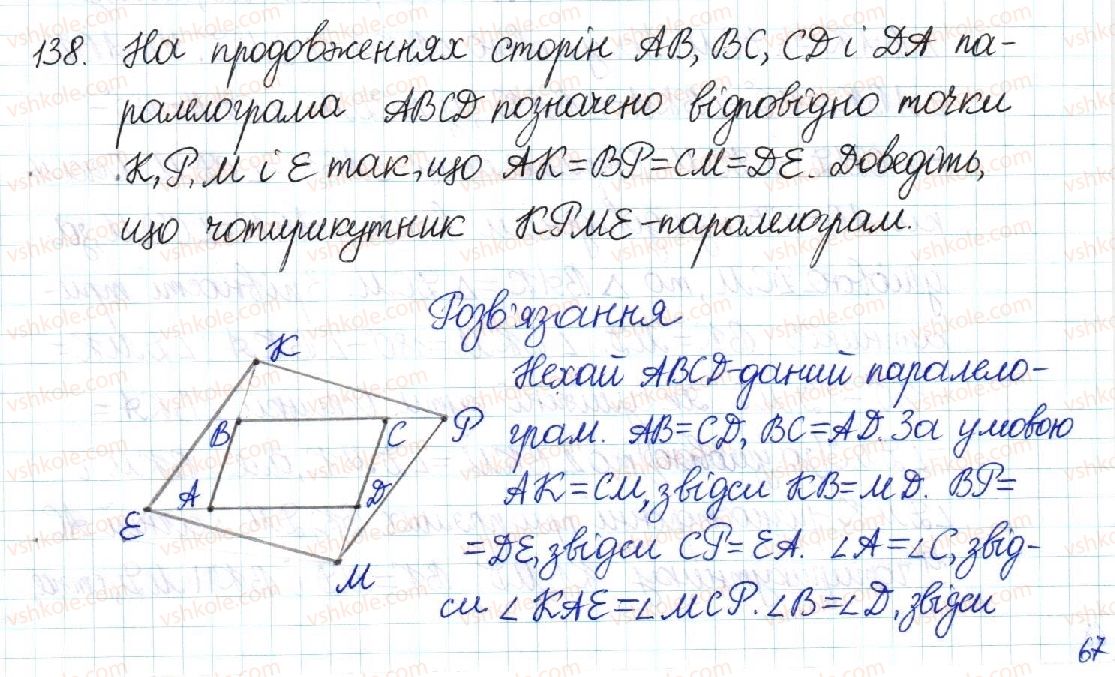 138. На продовженнях сторін AB, BC, CD і DA па-
ралелограма ABCD позначено відповідно точки
K, P, M і E так, що AK=BP=CM=DE. Доведіть,
що чотирикутник KPME-паралелограм.
Розв'язання
Нехай ABCD-даний паралело-
грам. AB=CD, BC=AD. За умовою
AK=CM, звідси KB=MD. BP=
=DE, звідси CP=EA. ∠A=∠C, звід-
си ∠KAE=∠MCP. ∠B=∠D, звідси
K
B
C
P
A
D
E
M
67